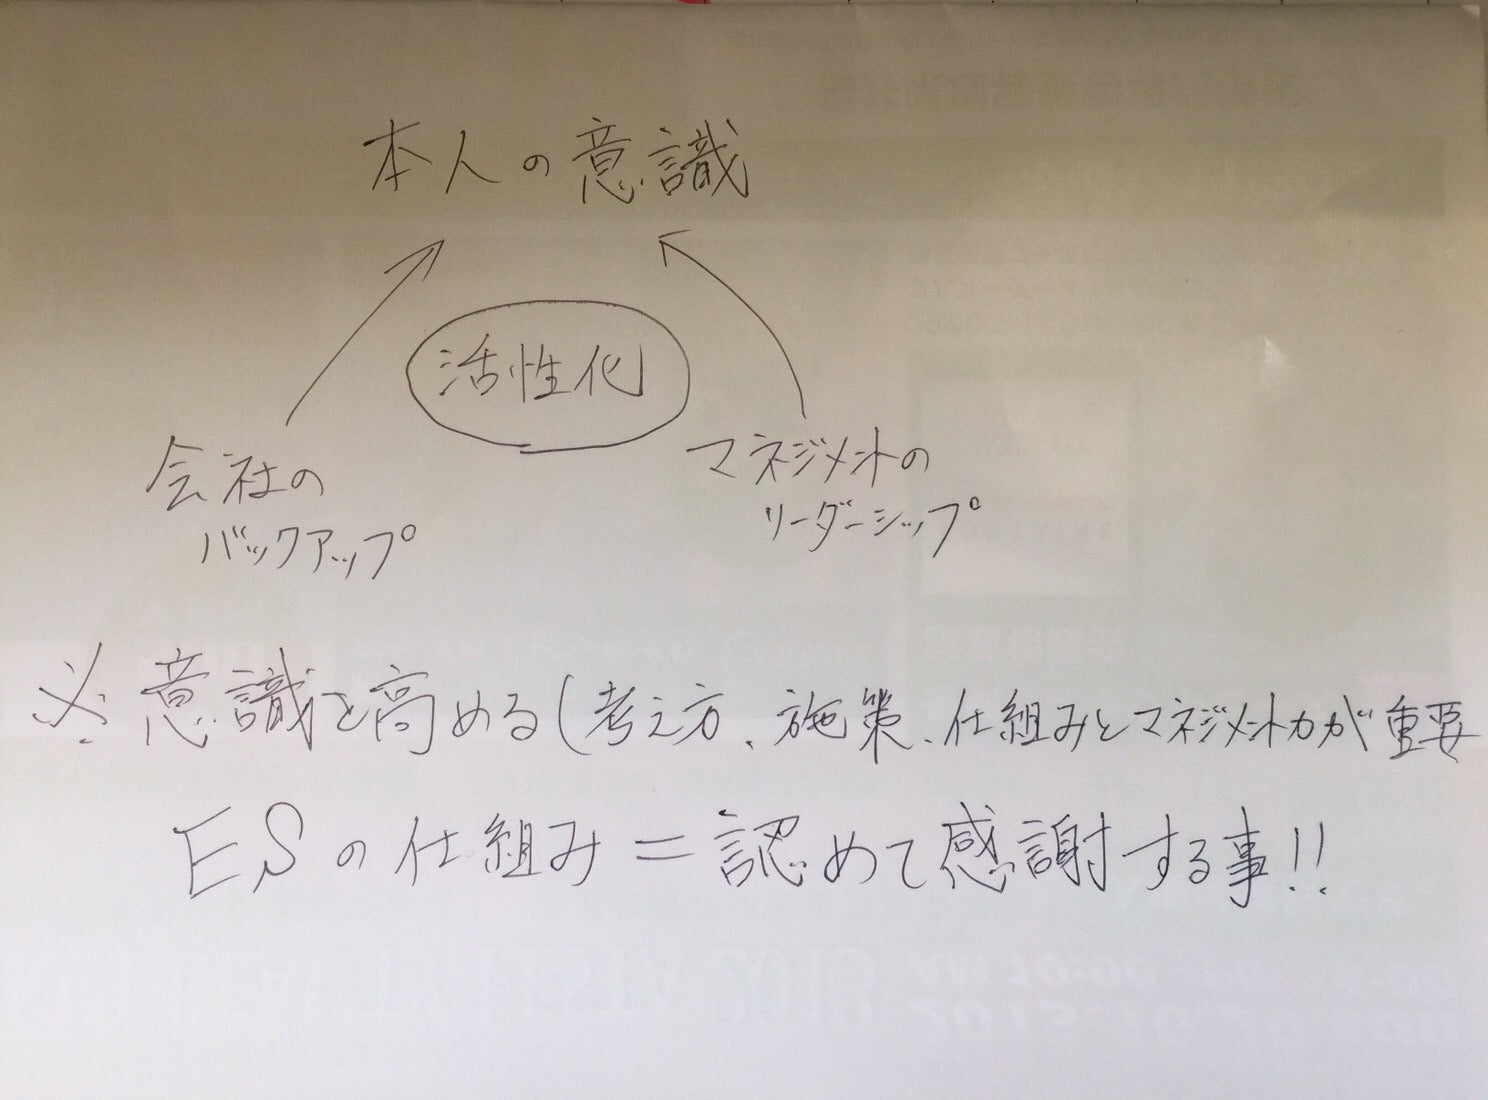 本人の意識
活性化
会社の
バックアップ
マネジメントの
リーダーシップ
※意識を高める(考え方、施策、仕組みとマネジメント力が重要
ESの仕組み=認めて感謝する事!!